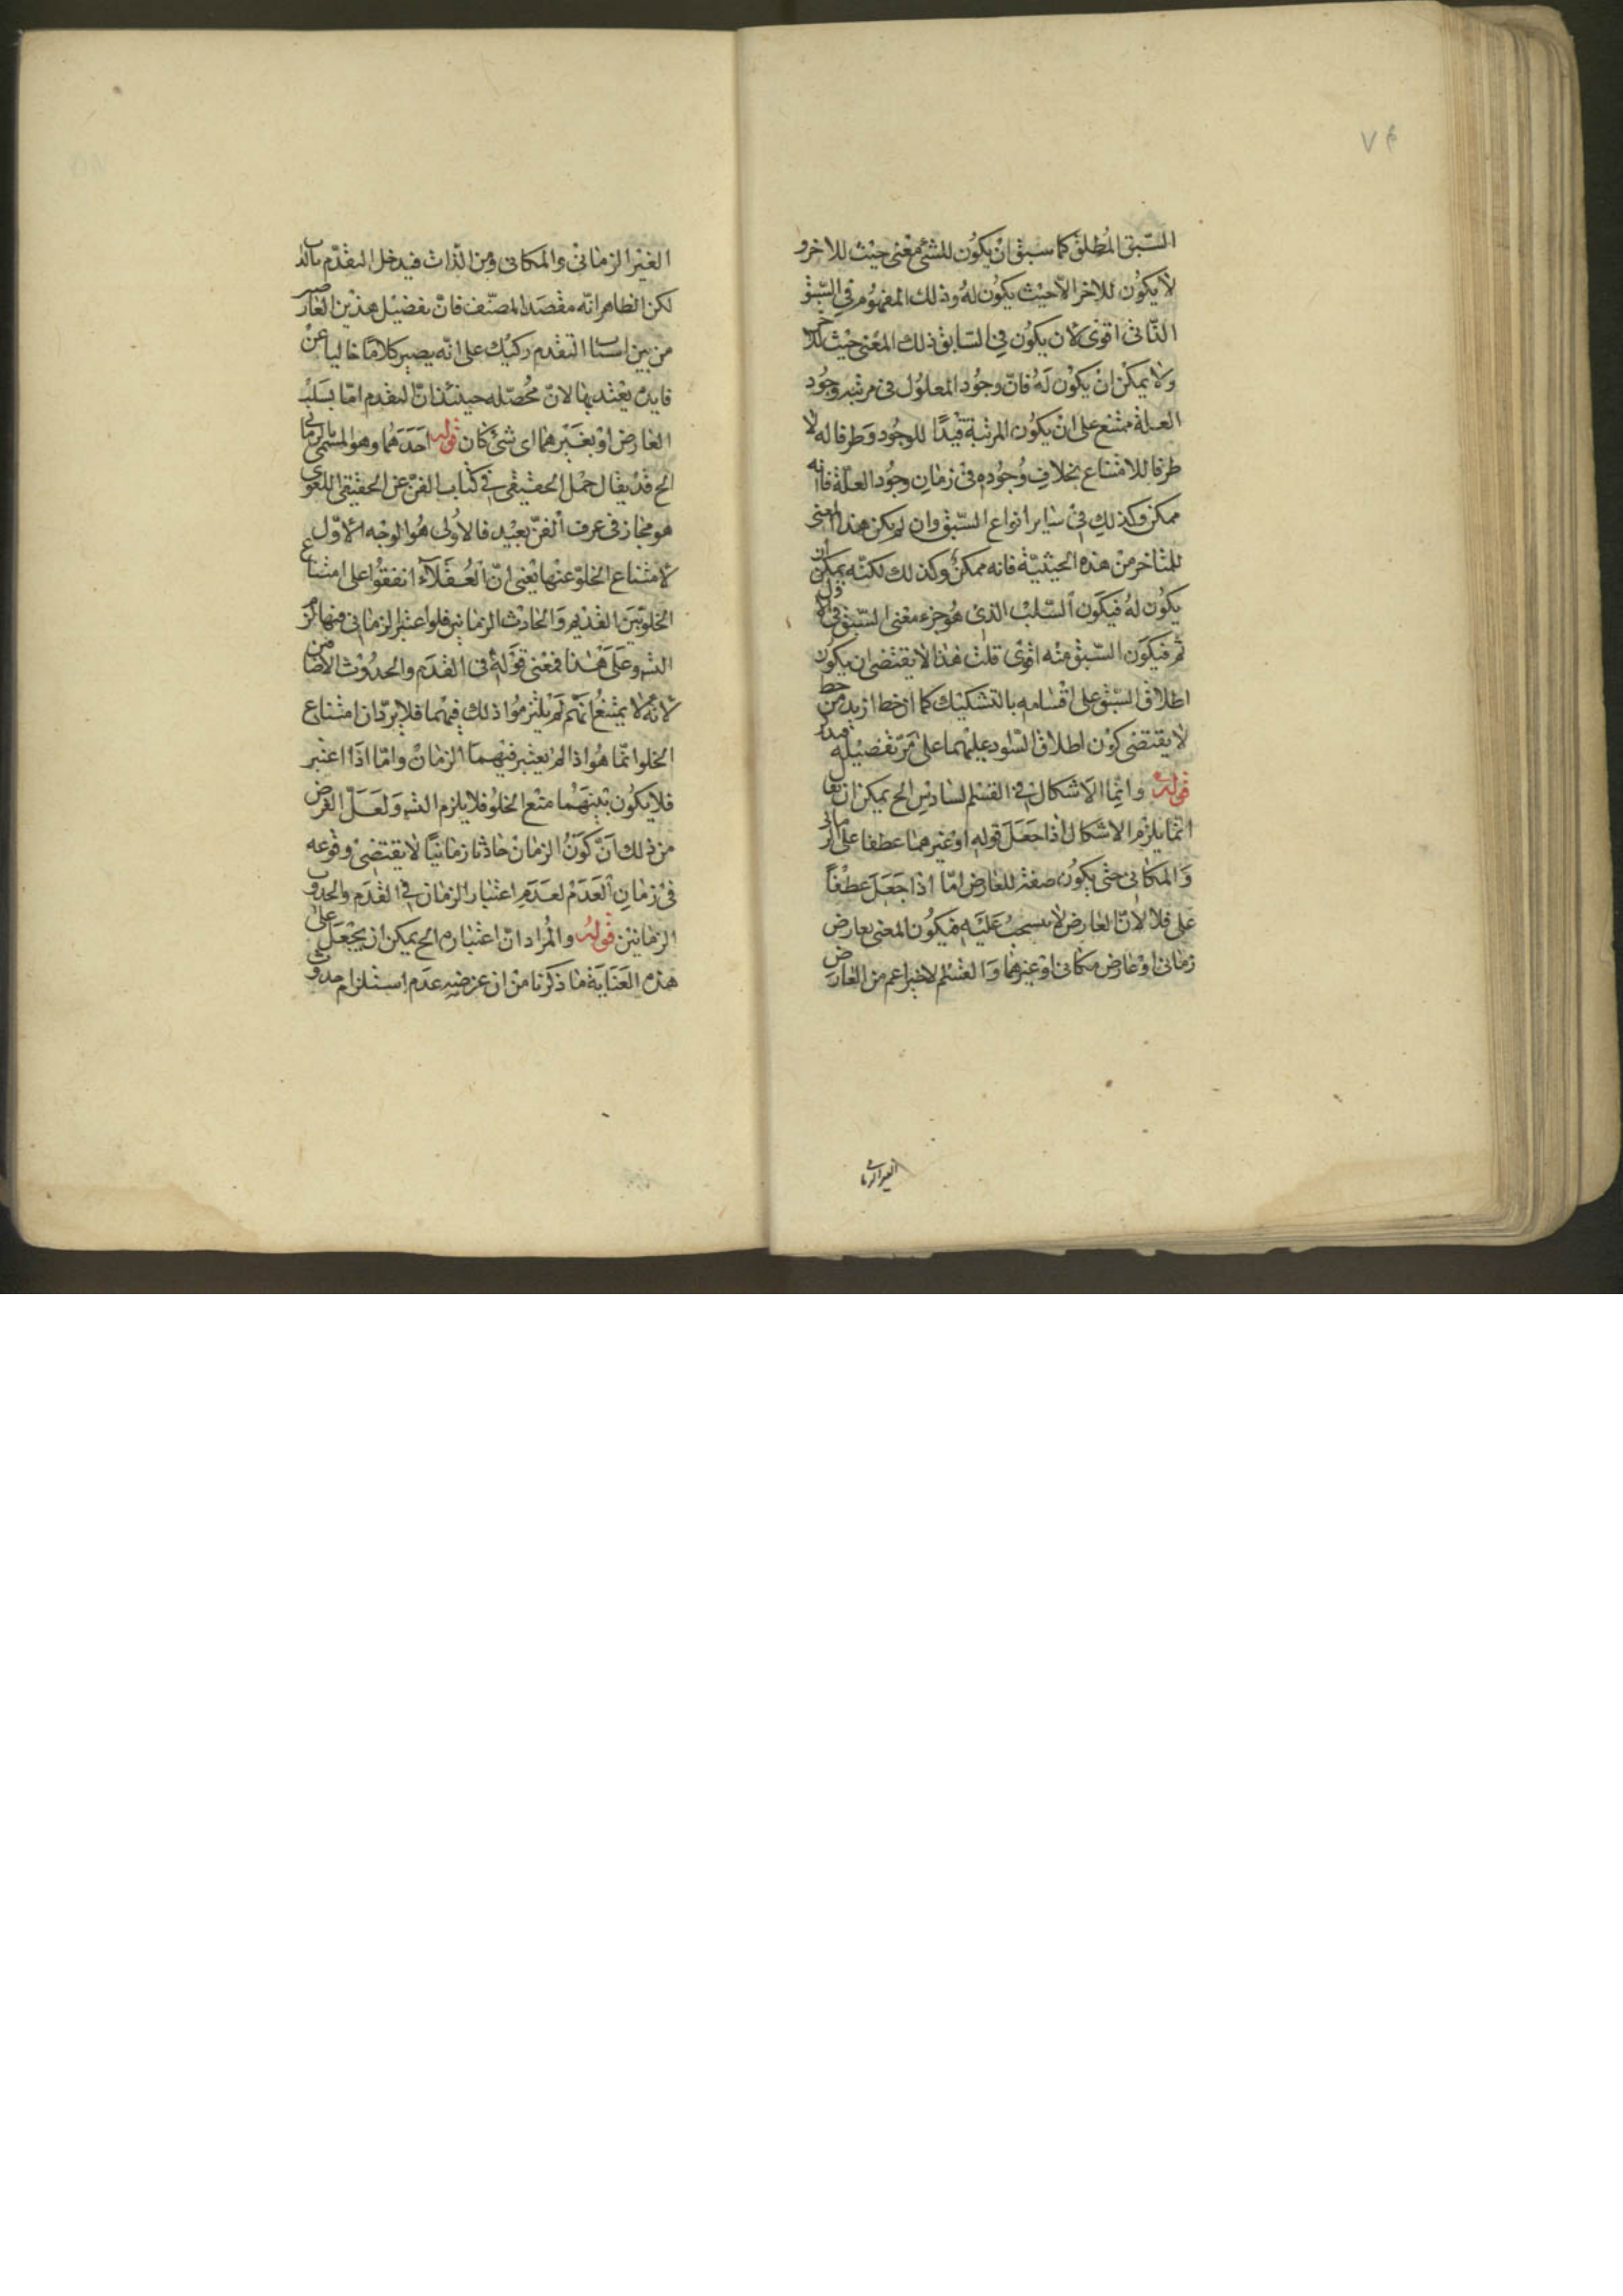 ٧٤
السّبق المُطلق كما سبق انْ يكوُن للشئ معْنى حيْث للاخر و
لا يكوُن للاخر الّا حيْث يكوُن لهُ وذلك المفهوُم في السّبق
الذّاتى اقوىٰ لان يكوُن في السّابق ذلك المعْنى حيْث
ولا يمكنْ انْ يكوْن لَهُ فانّ وجوُد المعلوُل فى مرتبه وجوُد
العلة ممتنع على انْ يكوُن المرتبة قيْدًا للوجُود وَطرفا له لا
طرفا للامتناع بخلافِ وُجوُده فىْ زمٰانِ وجوُد العلّة فانه
ممكن وَكذلكِ فىْ سٰاير انواع السّبق وان لم يكن هذا المعنى
للمتاخر منْ هذه الحيثيّة فانه ممكنٌ وَكذلك لكنّه يمكن ان
يكوُن لهُ فيكَون السّلبْ الذى هُو جزء معْنى السّبق فى الاول
ثم فيكوَن السّبق منْه اقوىٰ قلت هٰذا لا يقتضى ان يكوُن
اطلاق السّبق على اقسٰامه بالتشكيْك كما انّ خط ازيد من خط
لا يقتضى كوْن اطلاق السّواد عليهما علىٰ مَرّ تفْصيْله
قوله وانّما الاَشكال في القسْم السّادسِ الخ يمكن ان يقال
انّمٰا يلزم الاشكال اذا جعَلَ قوله اوغيْرهمٰا عطفا على الزمانى
وَالمكانى حتى يكوُن صفة للعارض امّا اذا جَعَلَ عطْفاً
على فلا لانّ العٰارض لا ينسحبُ عَليَْه فيكوُن المعنى بعارض
زمانى اوْ عٰارض مكانى اوْ غيرهمٰا وَالقسْم الاخير اعم من العارض
الغير الزمانى
الغيْر الزمٰانىْ والمكانى ومن الذّات فيدخل التقدّم بالذات
لكن الظاهر انّه مقْصَد المصنّف فانّ تفضيْل هذيْن العٰارضين
من بين اسباب التقدم ركيْك على انّه يصير كلامًا خاليا عنْ
فايدة يعْتد بهٰا لانّ مُحصّله حينئذ انّ التقدم امّا بسَلبْ
العٰارض اوْ بغَيْرهما اى شئ كان قوله احَدَهُما وهو المسمّى بالزمانى
الخ قدْ يقٰال حمْل الحقيقى في كتاب الفنّ عن الحقيقى اللغوى
هو مجٰاز فى عرف الفنّ بعيْد فالاوُلى هُو الوجْه الاوّل
لامتناع الخلوّ عنْها يعْنى انّ العُقَلآء اتفقوُا على امتناع
الخلوّ بَين القديم وَالحٰادث الزمٰانين فلو اعتبر الزمٰانى فيهٰا لزم
التسَ وعَلىَ هٰذا فمعْنى قوَلَهُ فى القدَم والحدُوْث الاضٰا من
لانّهُ لا يمتنعُ انهّم لمْ يلتزمُوا ذلك فيهْما فلا يردّ ان امتناع
الخلو انمّا هُو اذا لم يعتبر فيْهمَا الزمانْ وامّا اذَا اعتبر
فلا يكوُن بيْنهَما منع الخلوُ فلا يلزم التسَ وَلعَلّ الغرض
من ذلك انّ كوَنُ الزمٰانْ حٰادثا زمٰانيًا لا يقتضىْ وقوْعه
فىْ زمٰانِ العَدَمْ لعَدَم اعتبٰار الزمٰان في القدَم والحدوث
الزمٰانيْن قوله والمُراد انّ اعتبٰاره الخ يمكن ان يجْعَل على
هذه العنَايَة مٰا ذكرنا منْ ان غرضه عدَم استلزام حدوث